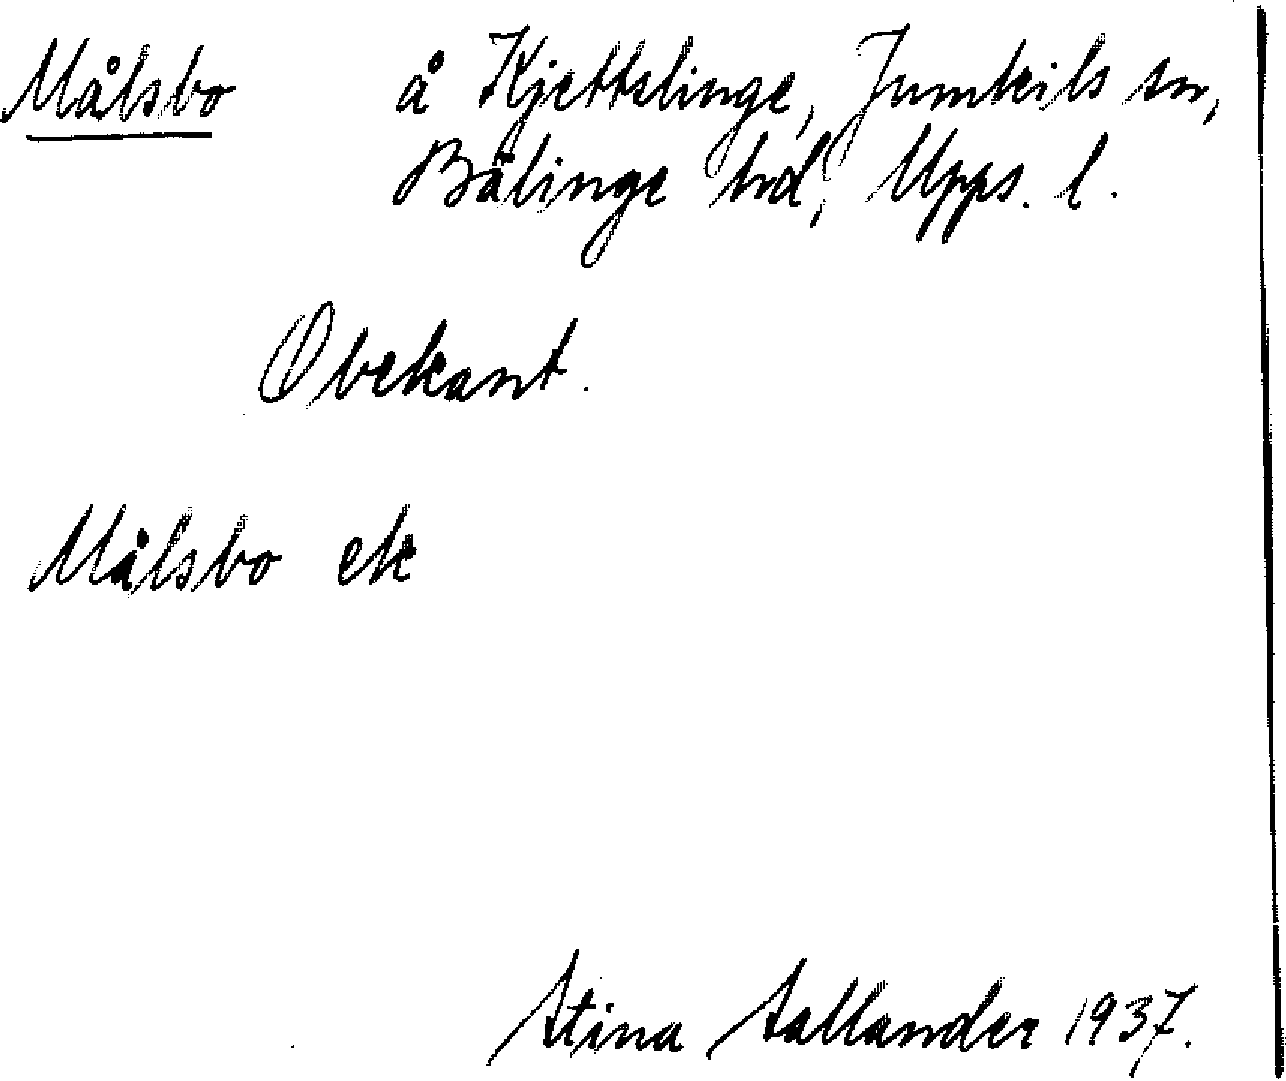 Målsbo å Kjettslinge, Jumkils sn,
Bälinge hd, Upps. l.
Obekant.
Målsbo ek
Stina Sallander 1937.